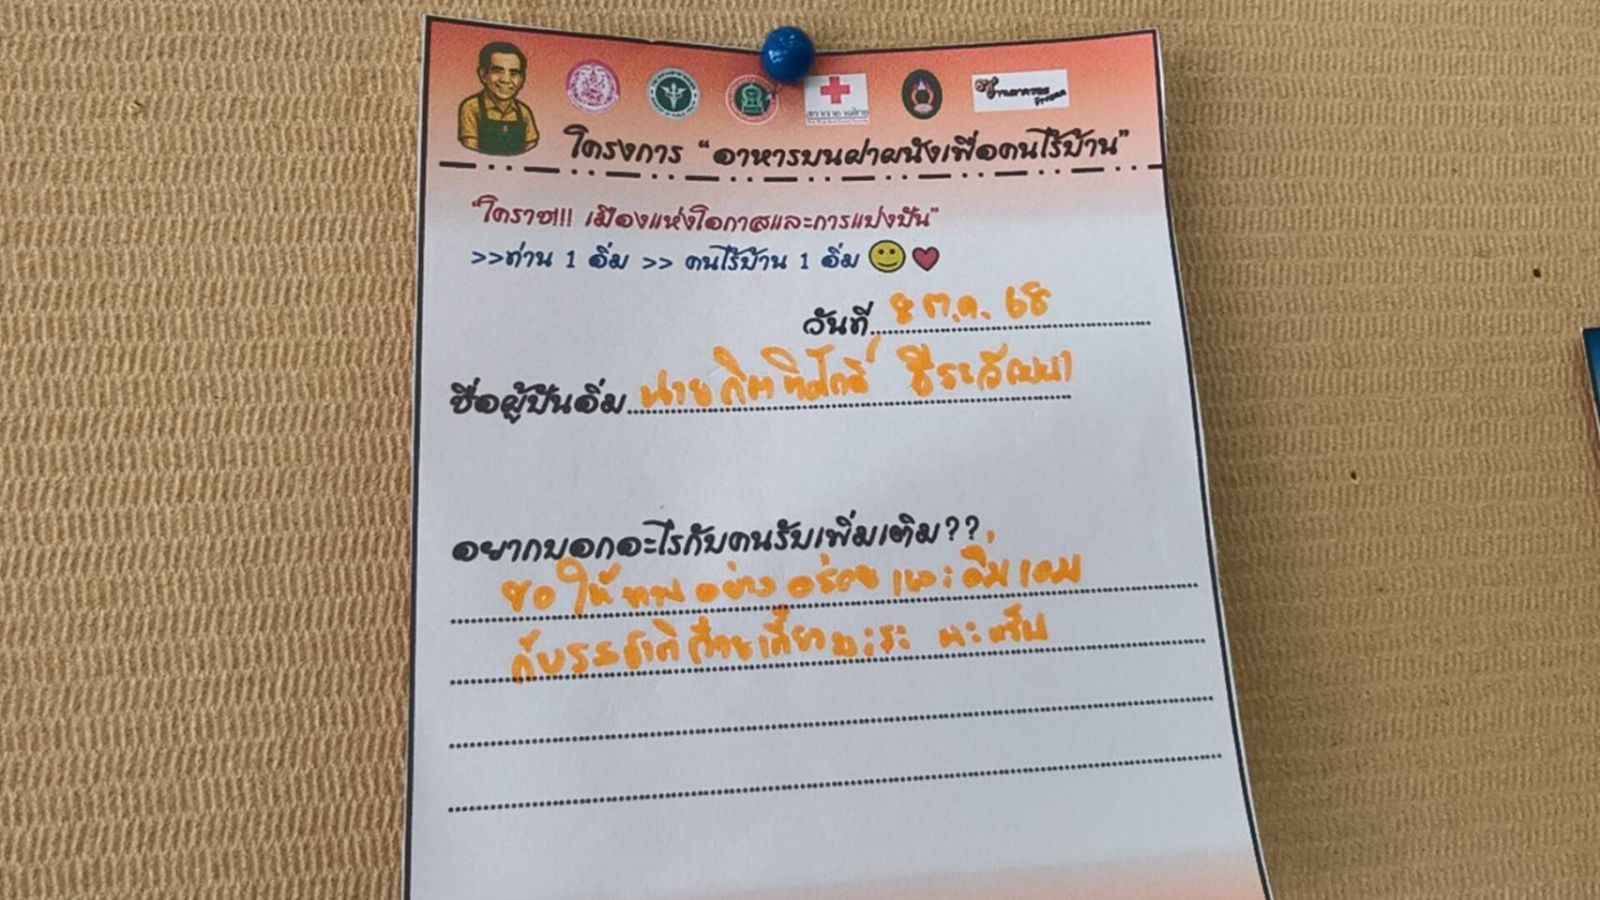 สภากาชาดไทย
โครงการ “อาหารบนฝาผนังเพื่อคนไร้บ้าน”
“โคราช!!! เมืองแห่งโอกาสและการแบ่งปัน”
>>ท่าน 1 อิ่ม >> คนไร้บ้าน 1 อิ่ม
วันที่ 8 ต.ค. 68
ชื่อผู้ปันอิ่ม นายกิตติศักดิ์ ธีระวัฒนา
อยากบอกอะไรกับคนรับเพิ่มเติม??
ขอให้ทานอย่างอร่อย และอิ่มเอม
กับรสชาติก๋วยเตี๋ยวมะระ นะครับ